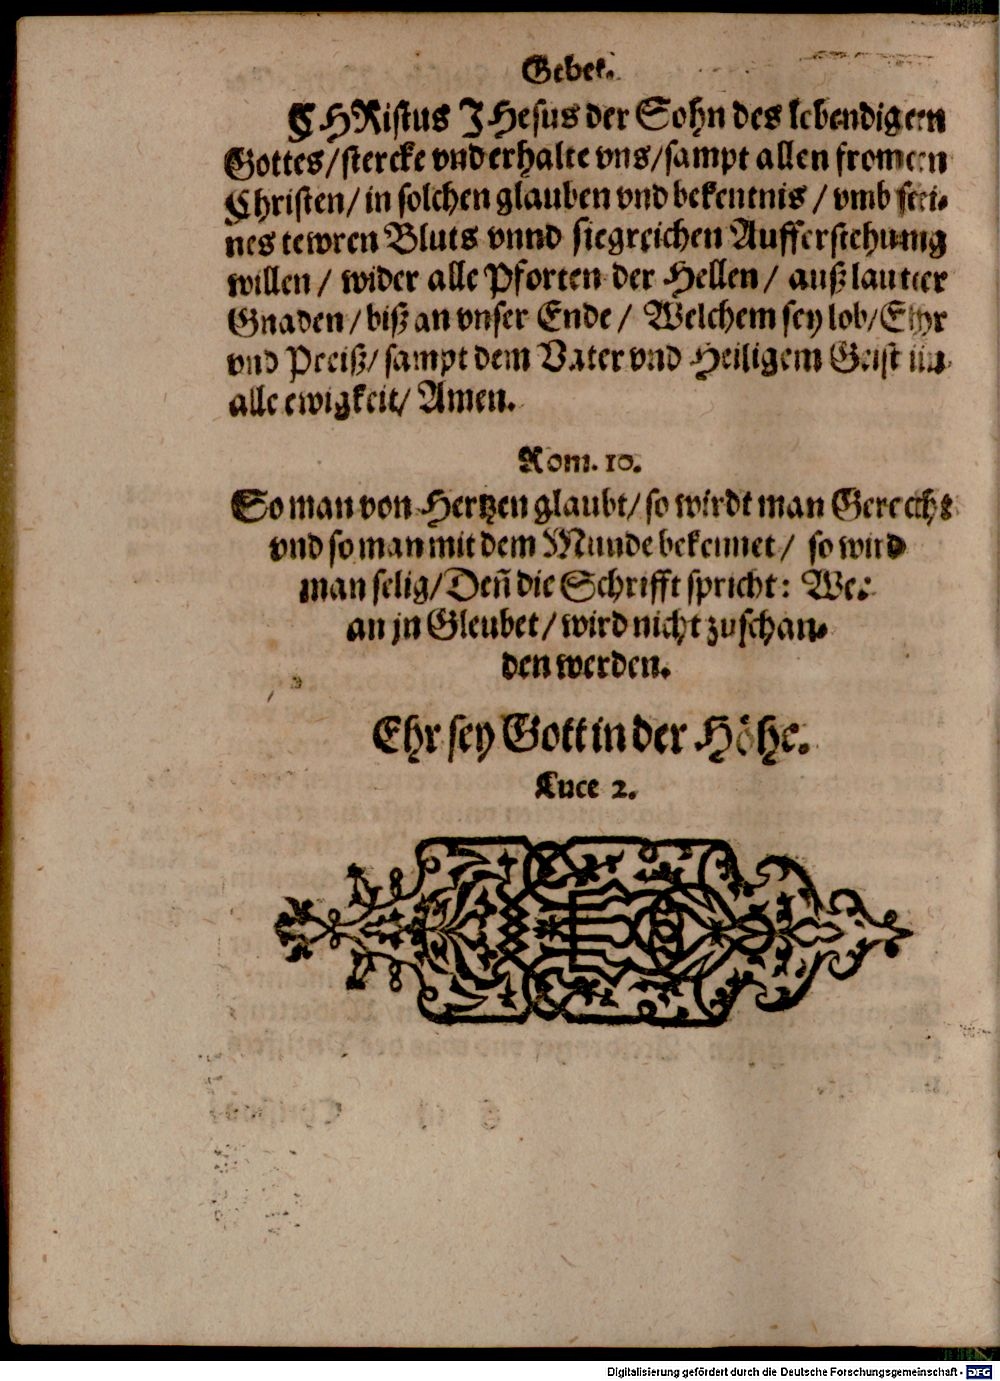 Gebet.
CHRistus JHesus der Sohn des lebendigen
Gottes/stercke vnd erhalte vns/sampt allen fromen
Christen/ in solchen glauben vnd bekentnis / vmb sei-
nes tewren Bluts vnnd siegreichen Aufferstehung
willen / wider alle Pforten der Hellen / auß lauter
Gnaden / biß an vnser Ende / Welchem sey lob/ Ehr
vnd Preiß/ sampt dem Vater vnd Heiligem Geist in
alle ewigkeit/ Amen.
Rom. 10.
So man von Hertzen glaubt/ so wirdt man Gerecht
vnd so man mit dem Munde bekennet / so wird
man selig/ Deñ die Schrifft spricht: Wer
an jn Gleubet / wird nicht zu schan-
den werden.
Ehr sey Gott in der Höhe.
Luce 2.
Digitalisierung gefördert durch die Deutsche Forschungsgemeinschaft - DFG